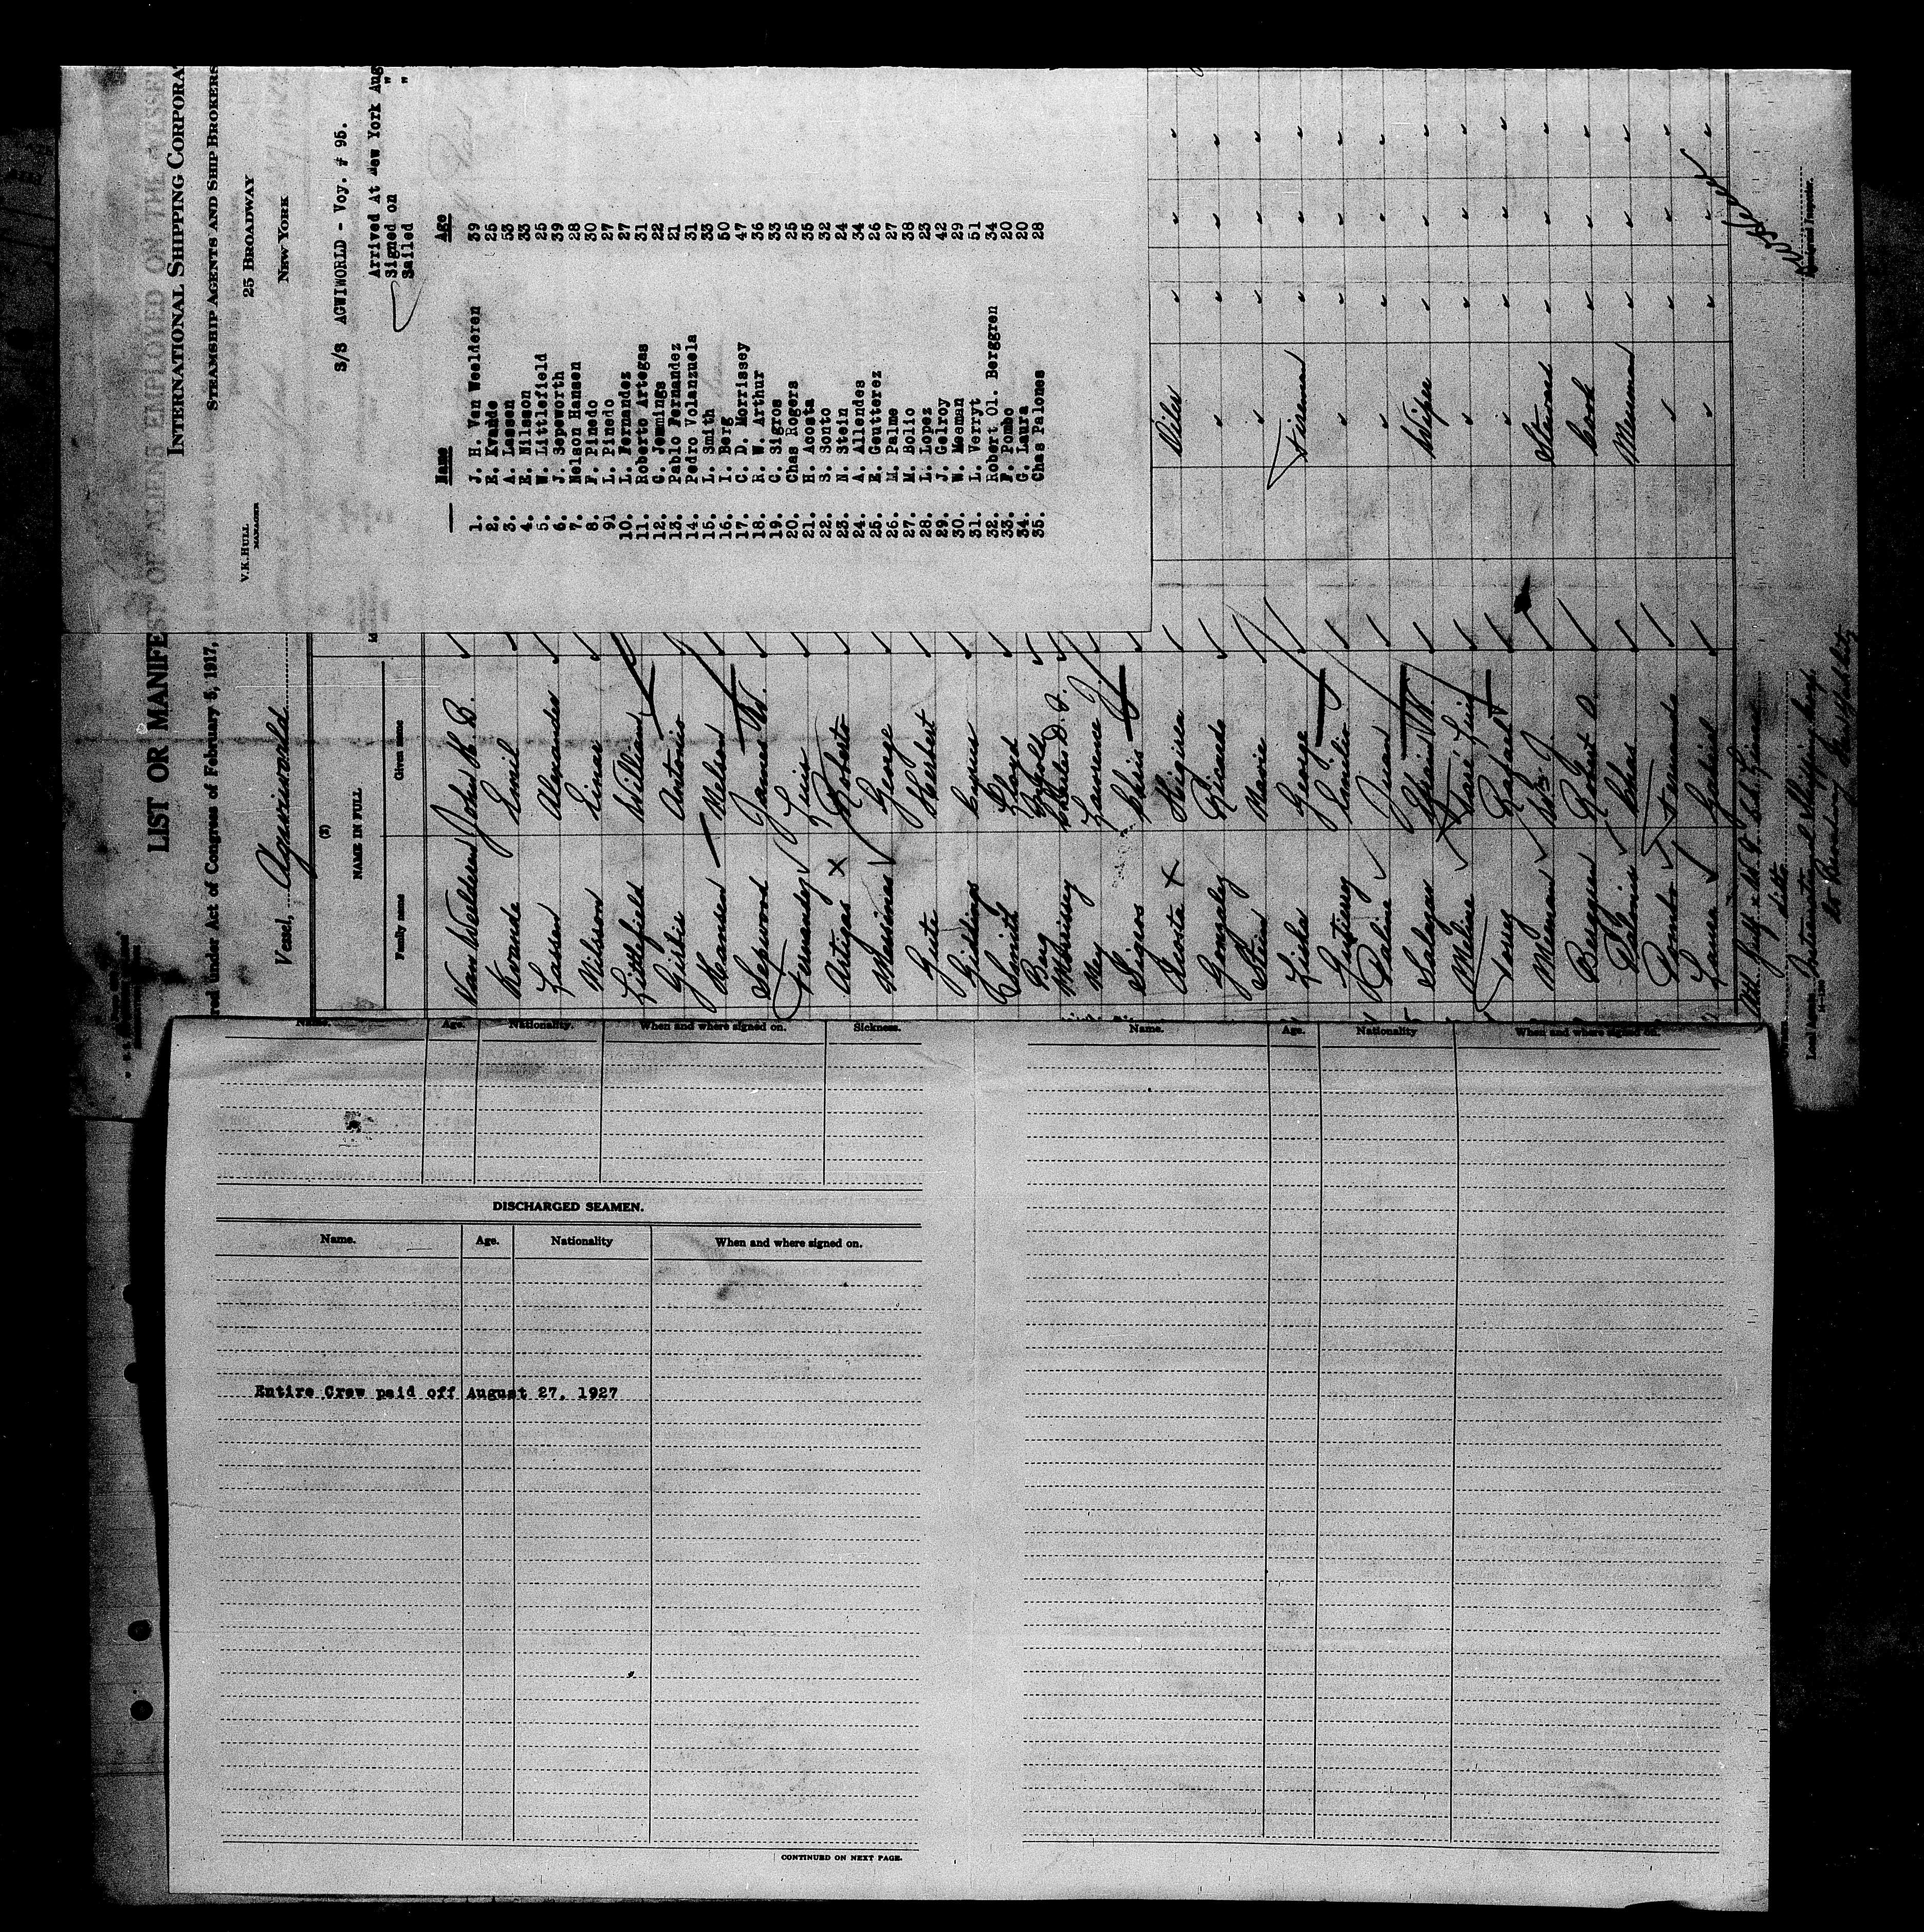 INTERNATIONAL SHIPPING CORPORA
STEAMSHIP AGENTS AND SHIP BROKERS
V.K.HULL
MANAGER
25 BROADWAY
NEW YORK
S/S AGWIWORLD - Voy. # 95.
Arrived At New York Aug
Signed on "
Sailed "
Name Age
1. J. H. Van Weelderen 39
2. E. Kvadde 25
3. A. Lassen 53
4. E. Nilsson 33
5. W. Littlefield 25
6. J. Sepsworth 39
7. Nelson Hansen 28
8. F. Pinedo 30
9. L. Pinedo 27
10. L. Fernandez 27
11. Roberto Artegas 31
12. C. Jennings 22
13. Pablo Fernandez 21
14. Pedro Volanzuela 31
15. L. Smith 33
16. I. Berg 50
17. C. D. Morrissey 47
18. R. W. Arthur 36
19. C. Sigros 33
20. Chas Rogers 25
21. H. Acosta 35
22. S. Sonto 32
23. N. Stein 24
24. A. Allendes 34
25. E. Geutterez 26
26. M. Palme 27
27. M. Bolio 38
28. L. Lopez 23
29. J. Gelroy 42
30. W. Meeman 29
31. L. Verryt 51
32. Robert Ol. Berggren 34
33. F. Pombo 20
34. G. Laura 20
35. Chas Palomes 28
LIST OR MANIFEST OF ALIENS EMPLOYED ON THE VESSEL
red Under Act of Congress of February 5, 1917,
Vessel, Agwiworld
(2)
NAME IN FULL
Family name Given name
Van Welderen John H. B.
Kvande Emil
Lassen Alexander
Nilsson Einar
Littlefield William
Gislie Antonio
Hansen Nelson
Sepwood James W.
Fernandez Luis
Artigas Roberto
Massines George
Gute Herbert
Giddings Cyrus
Smith Lloyd
Berg Ingolf
Morrissey Charles D. F.
Mey Lawrence
Sigros Chris
Acosta Higinia
Gonzalez Ricardo
Stein Navie
Fisher George
Gutierrez Emilio
Paline Juan
Salagan
Moline Jose Luis
Rafael
Mieman Wm J.
Berggren Robert O.
Palomis Chas
Pombo Fernando
Laura Gadiel
Oiler
"
"
Fireman
"
"
Wiper
"
"
Steward
Cook
Messman
"
"
Local Agents International Shipping Corp.
25 Broadway New York City
Immigrant Inspector.
Name. Age. Nationality. When and where signed on. Sickness.
DISCHARGED SEAMEN.
Name. Age. Nationality When and where signed on.
Entire Crew paid off August 27, 1927
CONTINUED ON NEXT PAGE.
Name. Age. Nationality When and where signed on.